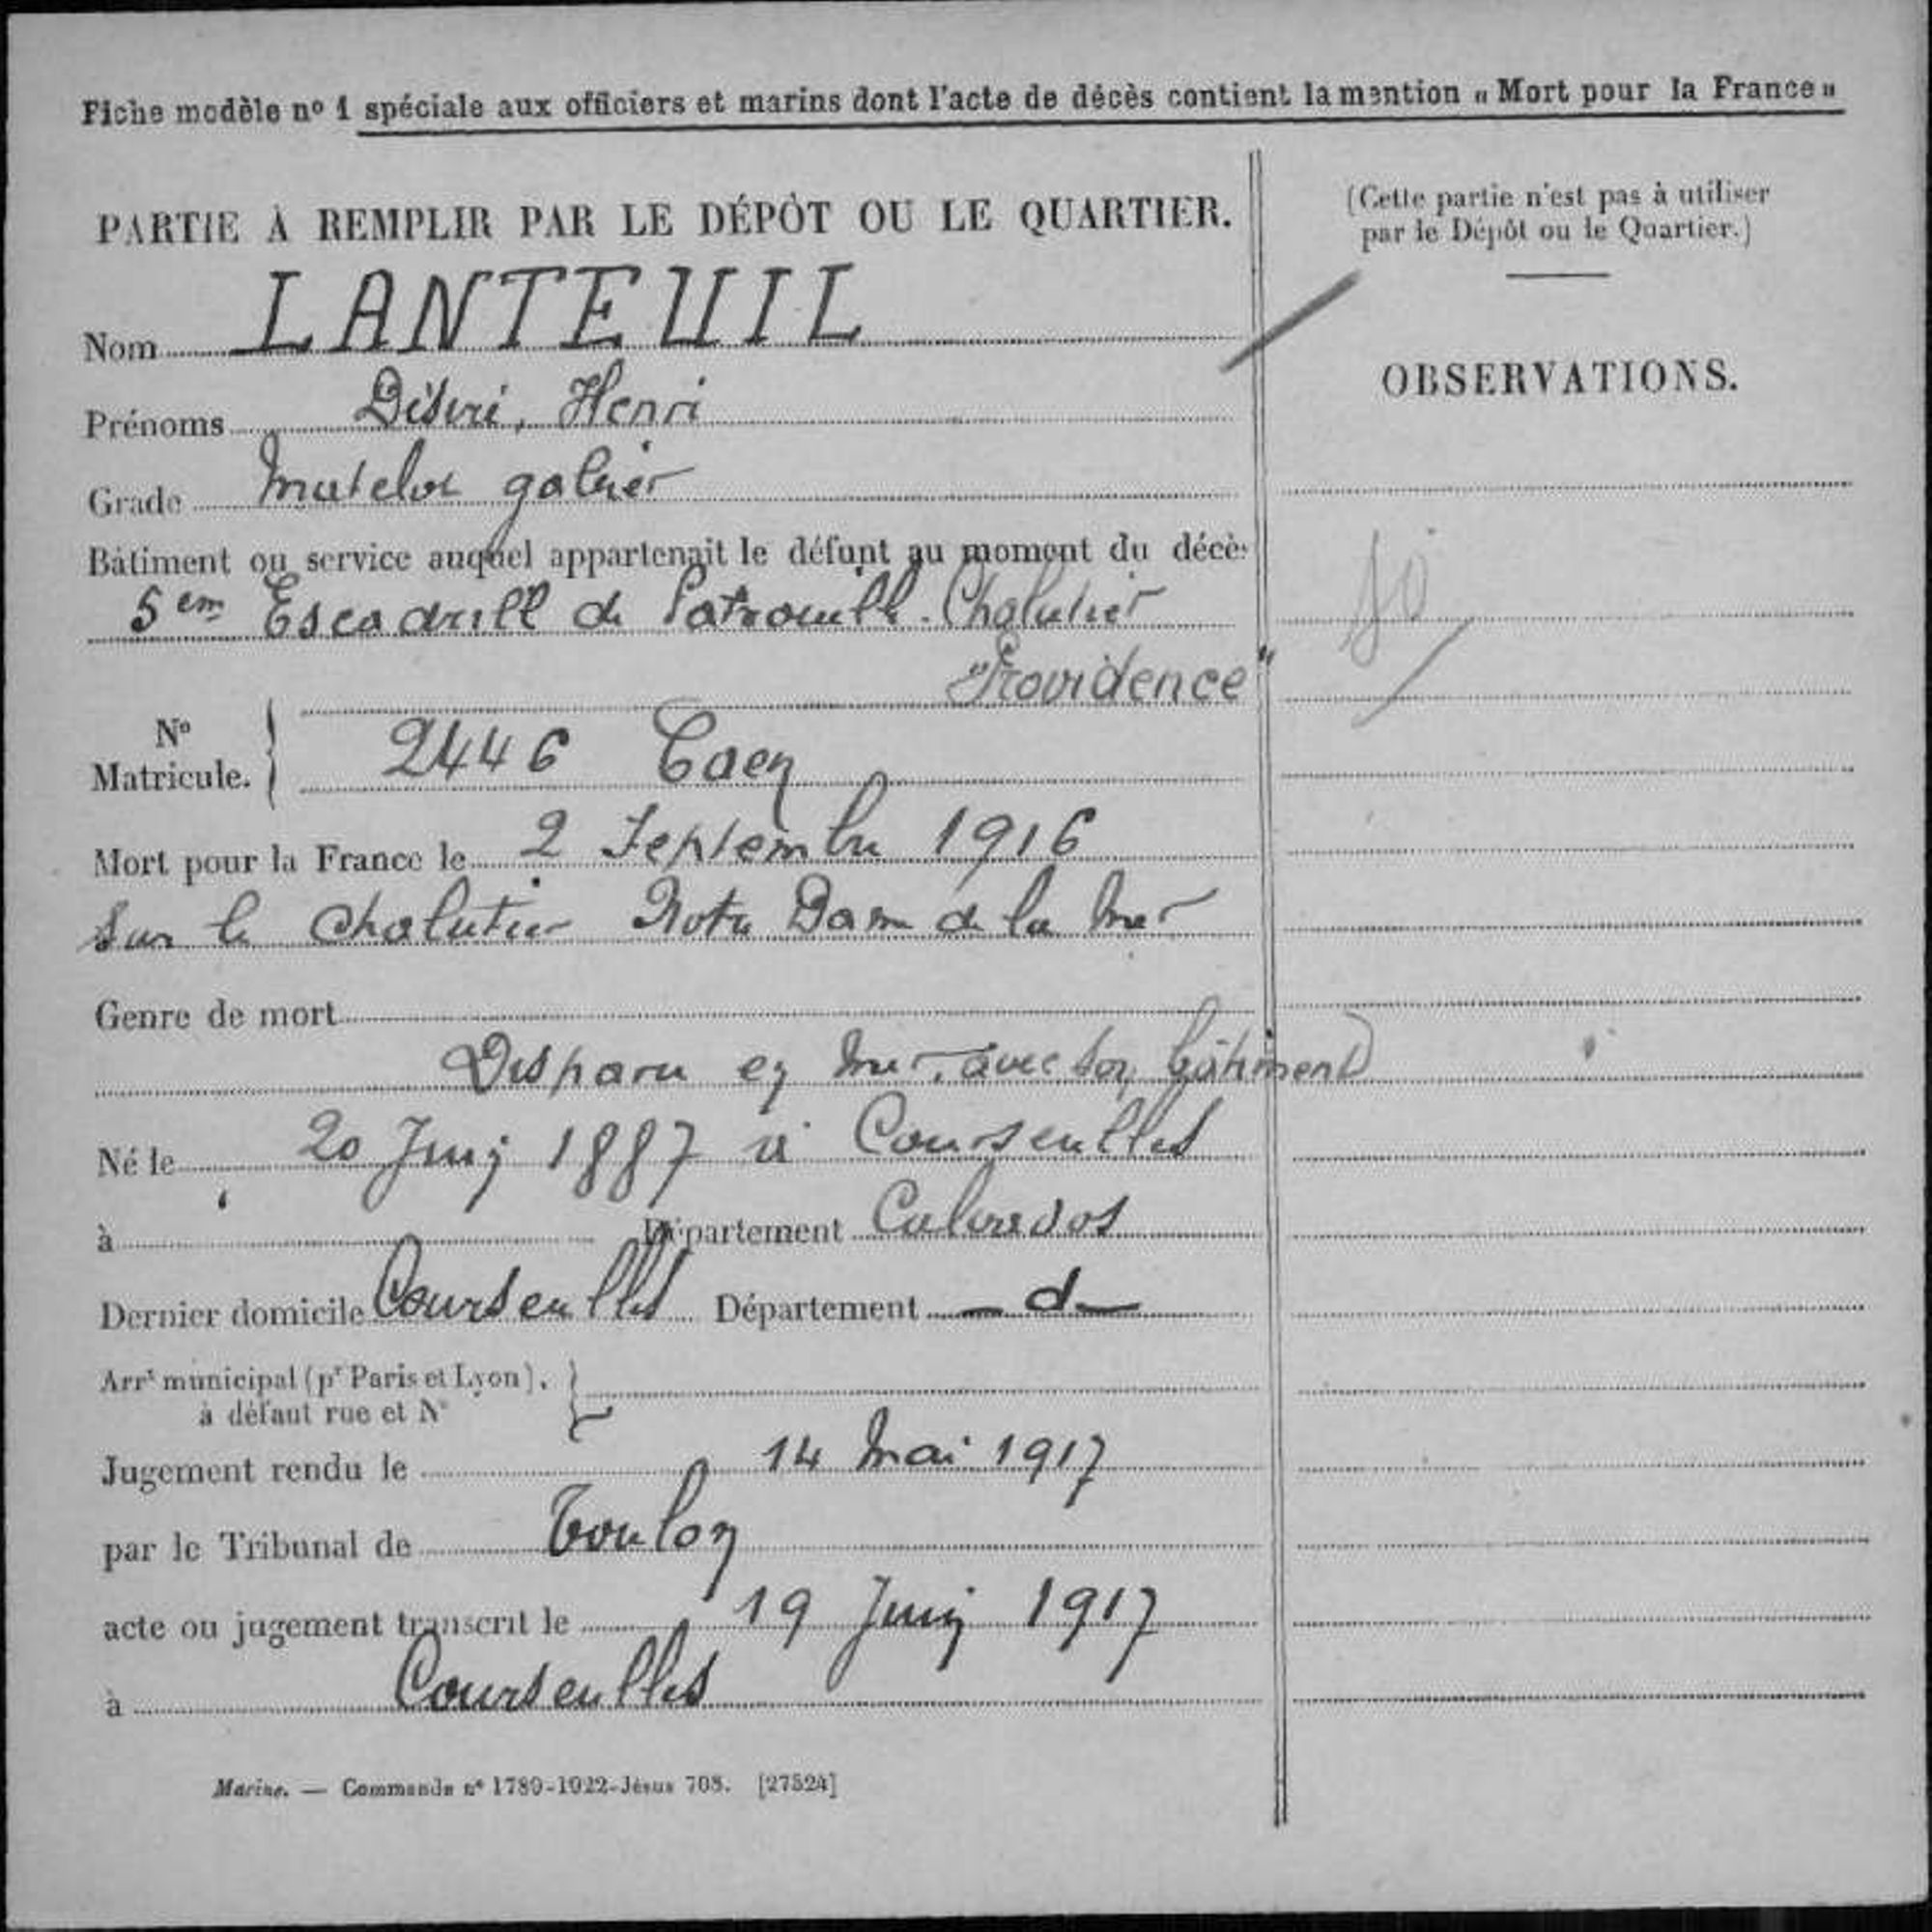 Fiche modèle nº 1 spéciale aux officiers et marins dont l'acte de décès contient la mention « Mort pour la France »
PARTIE À REMPLIR PAR LE DÉPÔT OU LE QUARTIER.
Nom LANTEUIL
Prénoms Désiré, Henri
Grade Matelot gabier
Bâtiment ou service auquel appartenait le défunt au moment du décès
5em Escadrill de Patrouille. Chalutier
"Providence"
Nº Matricule. 2446 Caen
Mort pour la France le 2 Septembre 1916
Sur le chalutier Notre Dame de la Mer
Genre de mort
Disparu en mer, avec son bâtiment
Né le 20 Juin 1887 à Courseulles
à Département Calvados
Dernier domicile Courseulles Département — d —
Arrt municipal (pr Paris et Lyon),
à défaut rue et Nº
Jugement rendu le 14 Mai 1917
par le Tribunal de Toulon
acte ou jugement transcrit le 19 Juin 1917
à Courseulles
Marine. — Commande nº 1789-1922-Jésus 708. [27524]
(Cette partie n'est pas à utiliser
par le Dépôt ou le Quartier.)
OBSERVATIONS.